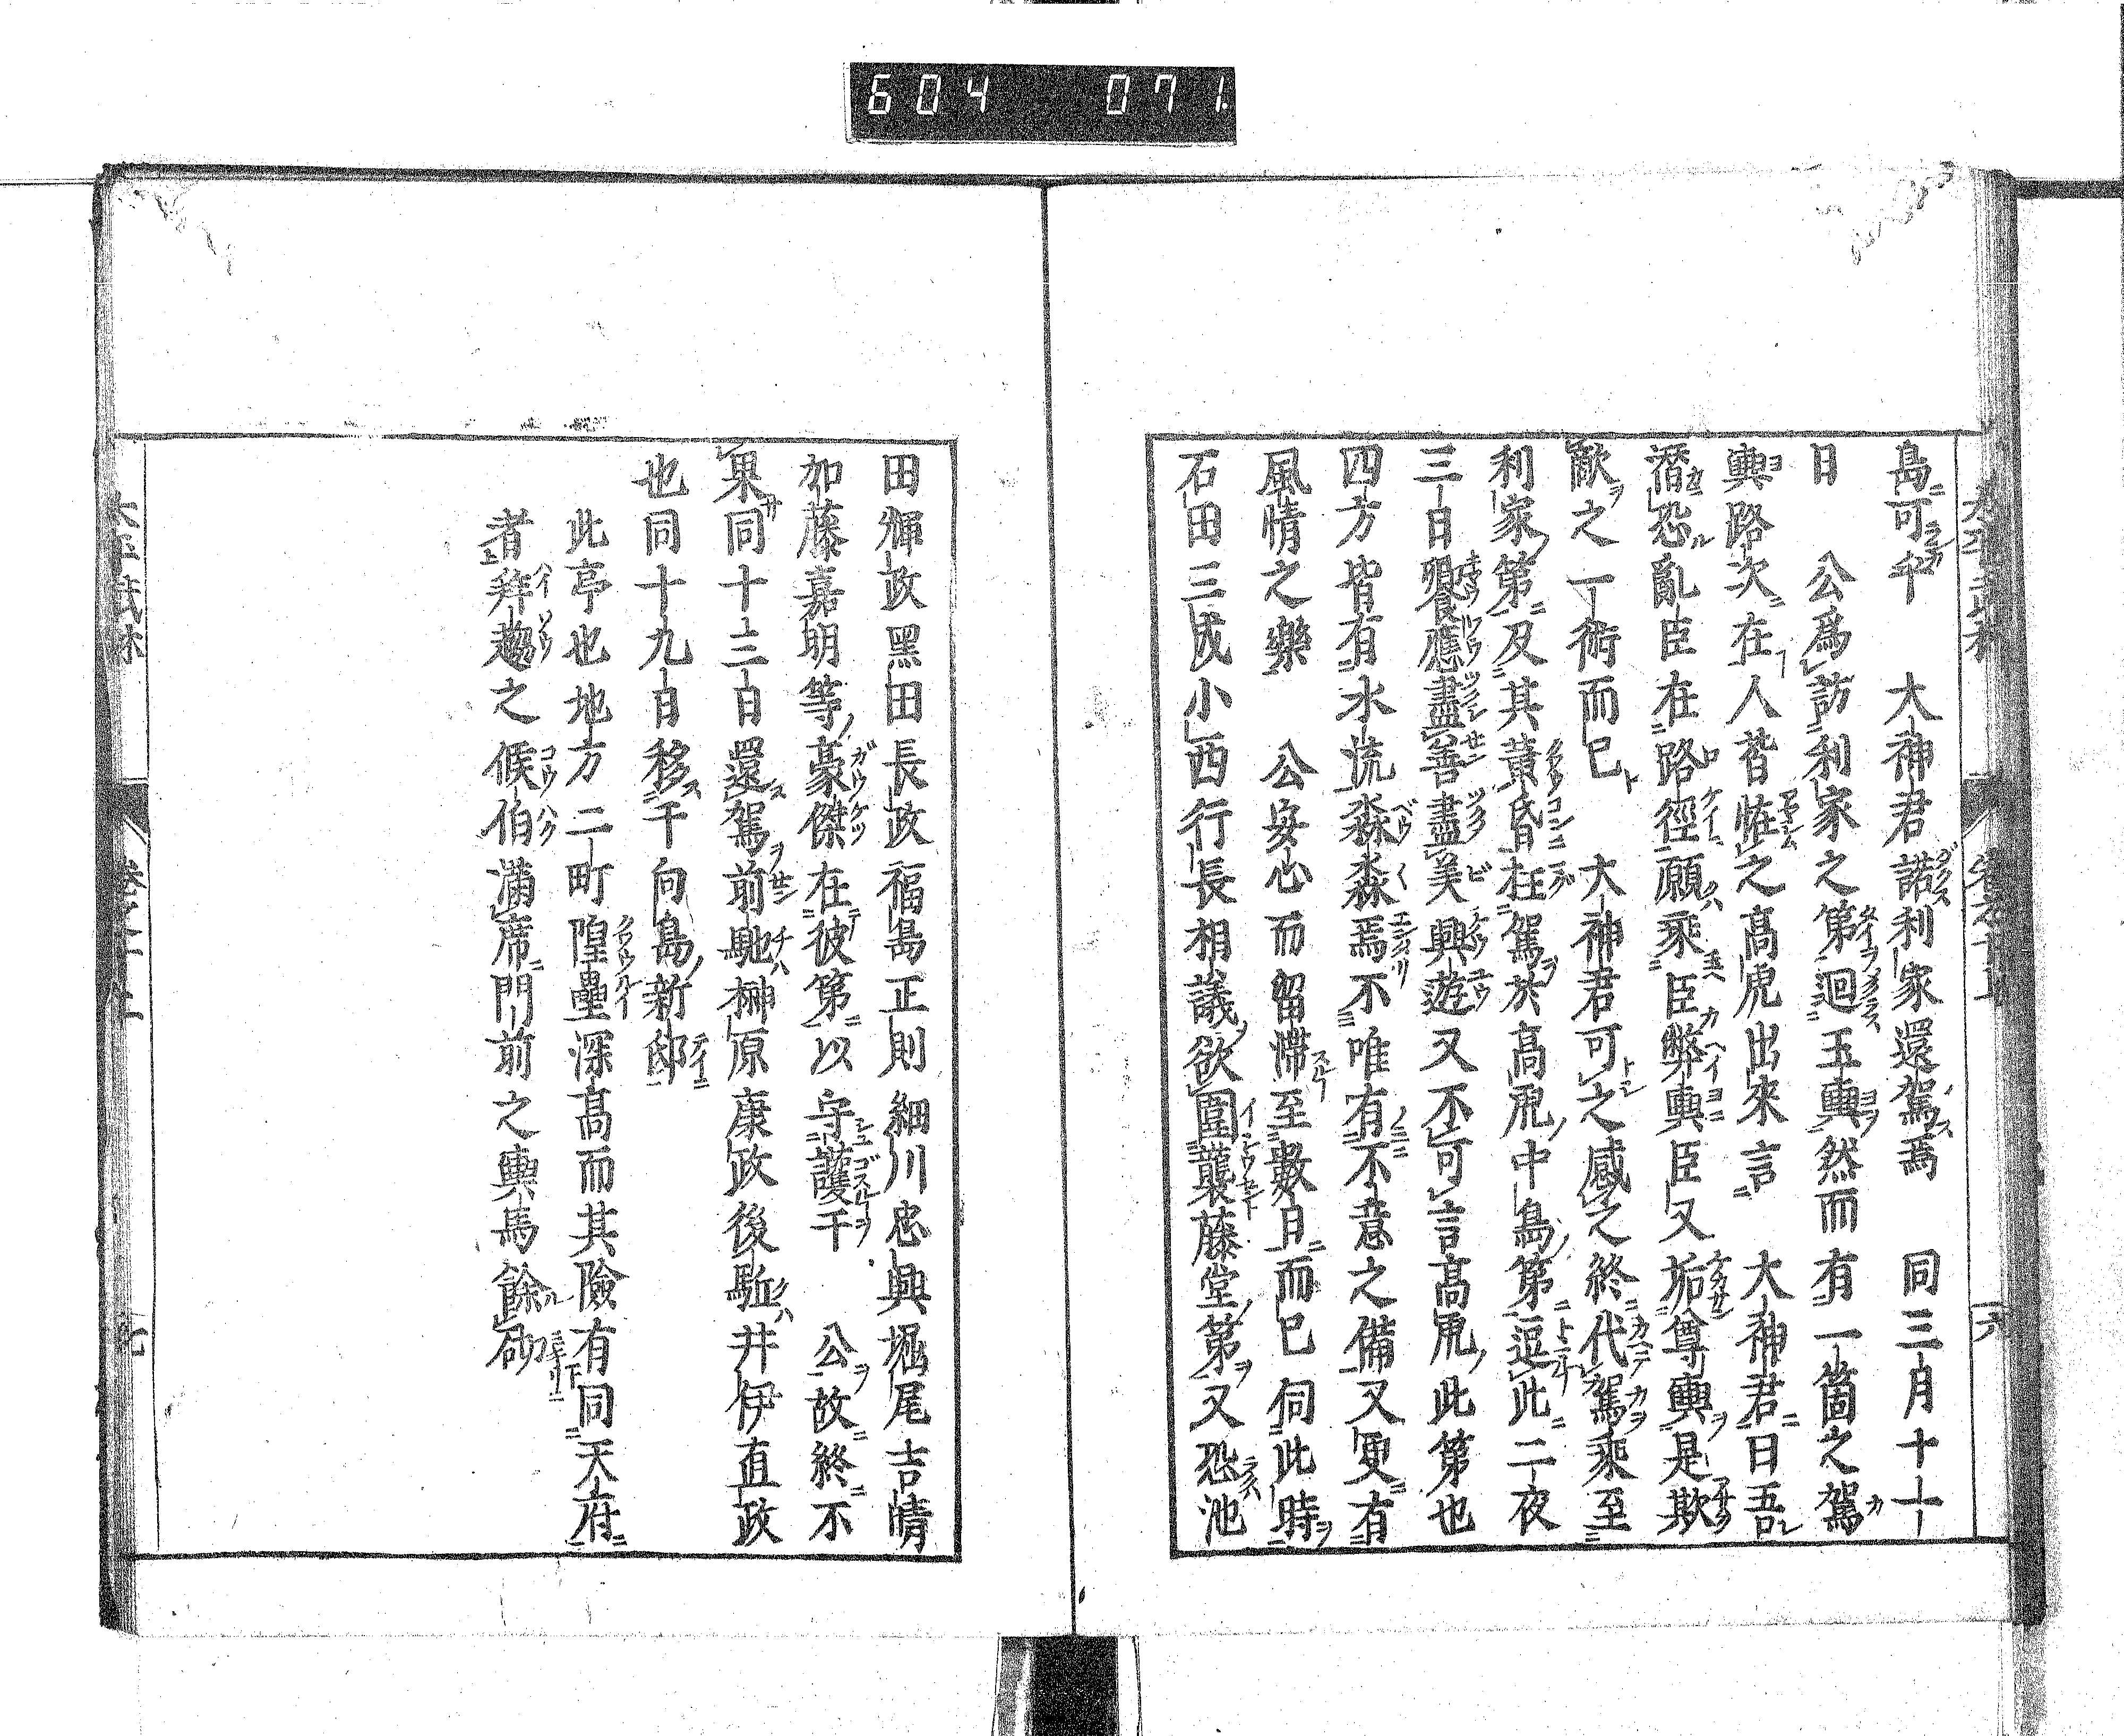 604 071
島可乎　大神君諾利家還駕焉　同三月十一
日　公爲訪利家之第迴玉輿然而有一箇之駕
輿路次在人皆恠之高虎出來言　大神君曰吾
潛恐亂臣在路徑願乘臣弊輿臣又垢尊輿是欺
歒之一術而已　大神君可之感之終代駕乘至
利家第及其黃昏枉駕於高虎中島第逗此二夜
三日饗應盡善盡美興遊又不可言高虎此第也
四方皆有水流淼淼焉不唯有不意之備又更有
風情之樂　公安心而留滯至數日而已伺此時
石田三成小西行長相議欲圍襲藤堂第又恐池
田輝政黑田長政福島正則細川忠興堀尾吉晴
加藤嘉明等豪傑在彼第以守護于　公故終不
果同十三日還駕前馳榊原康政後駈井伊直政
也同十九日移于向島新邸
此亭也地方二町隍壘深高而其險有同天府
者拜趨之侯伯滿席門前之輿馬餘砌